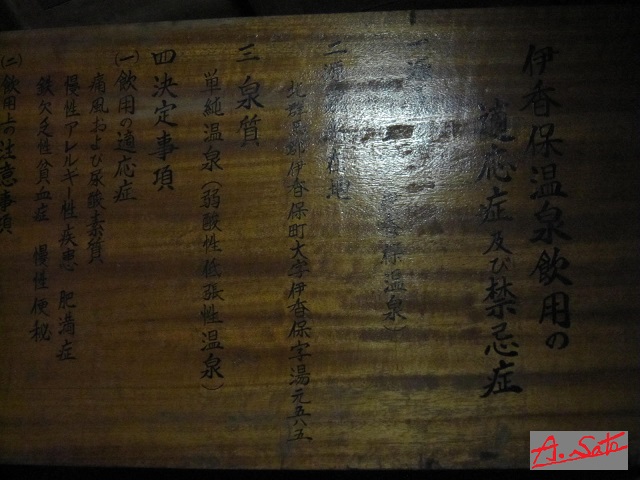 伊香保温泉飲用の
適応症及び禁忌症
一 源
伊香保温泉)
二 源 在地
北群馬郡伊香保町大字伊香保字湯元五八五
三 泉質
単純温泉(弱酸性低張性温泉)
四 決定事項
(一)飲用の適応症
痛風および尿酸素質
慢性アレルギー性疾患 肥満症
鉄欠乏性貧血症 慢性便秘
(二)飲用上の注意事項
A. Sato